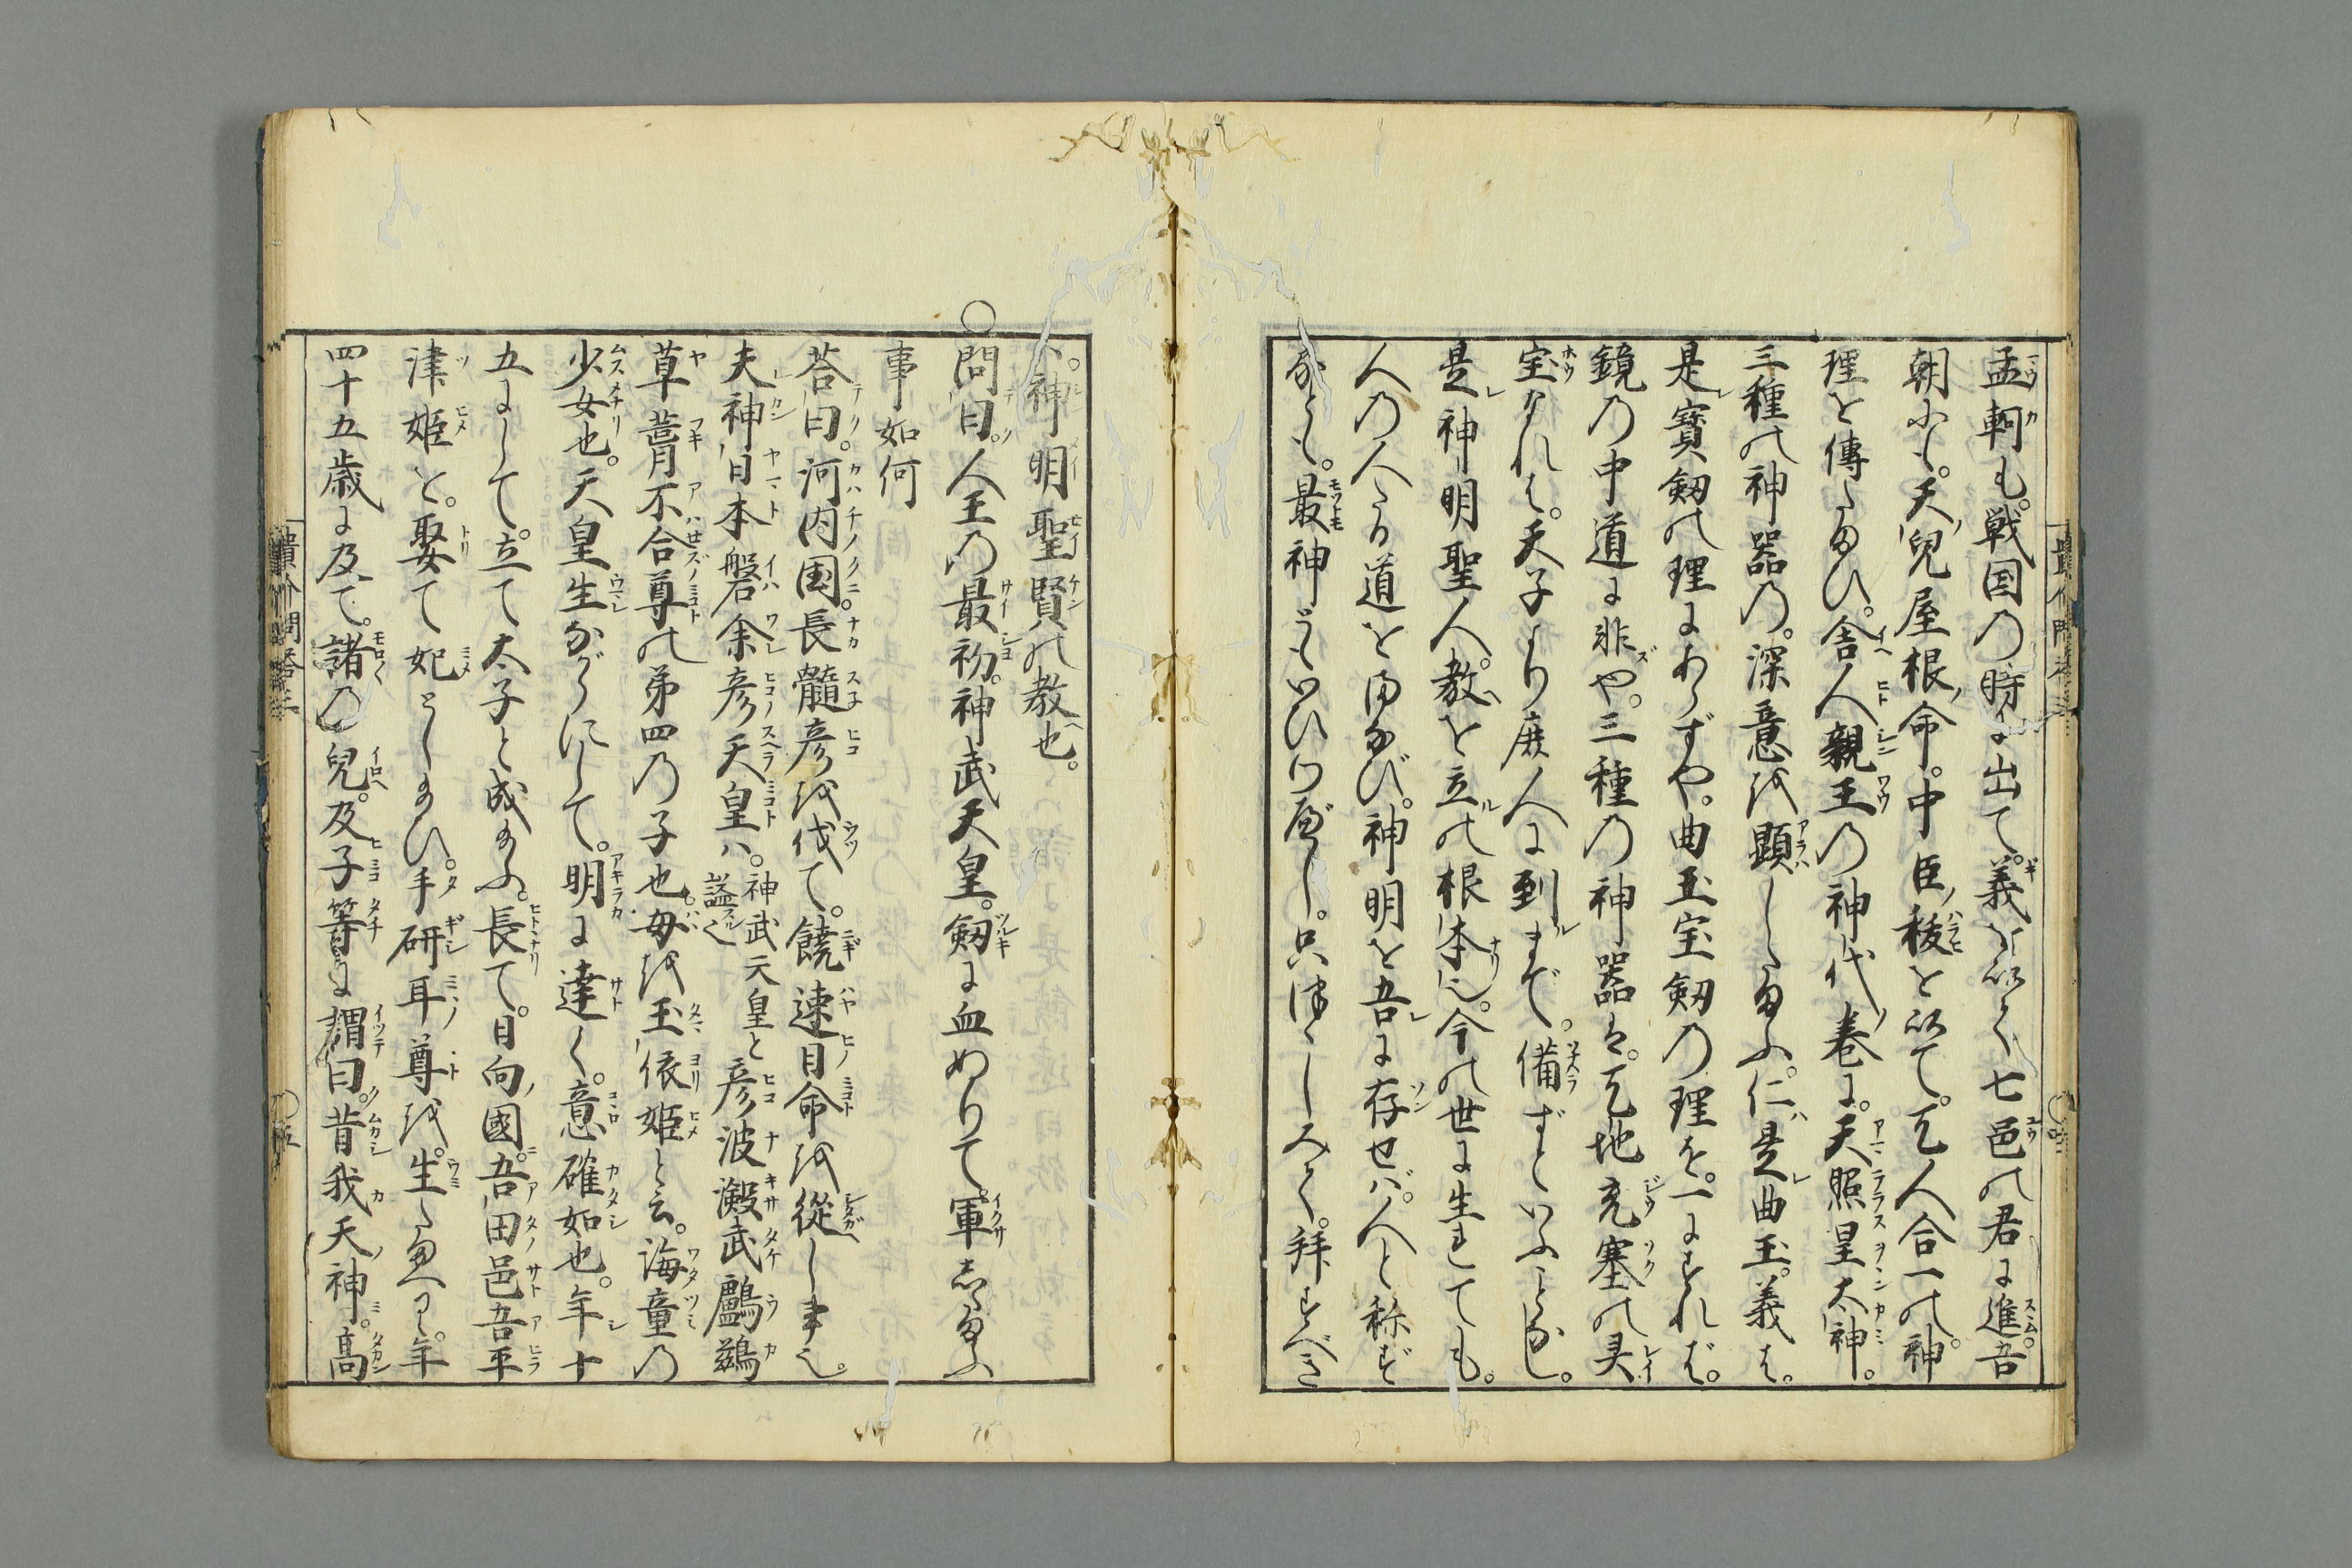 孟軻も。戦国の時に出て。義を以て七邑の君に進。吾
朝にも。天児屋根命。中臣祓を以て。天人合一の。神
理を傳たまひ。舎人親王の神代巻に。天照皇太神。
三種の神器の。深意を顕したまふ。仁ハ是曲玉。義は。
是寳剱の理にあらずや。曲玉宝剱の理を。一にすれば。
鏡の中道に非や。三種の神器は。天地充塞の具
宝なれば。天子より庶人に到まで。備ずといふことなし。
是神明聖人。教を立の根本也。今の世に生れても。
人の人たる道をまなび。神明を吾に存せば。人と称す
なとも。最神ともいひつべし。只つゝしみて。拝すべき
ハ神明聖賢の教也。
○問曰。人王の最初。神武天皇。剱に血ぬりて。軍したまふ
事如何
荅曰。河内国。長髓彦を伐て。饒速日命を従しむ也。
夫神日本磐余彦天皇ハ。神武天皇と諡く彦波瀲武鸕鷀
草葺不合尊の第四の子也。母を玉依姫と云。海童の
少女也。天皇生ながらにして。明に達く。意確如也。年十
五にして。立て太子と成まふ。長て。日向國。吾田邑吾平
津姫を。娶て妃としまひ。手研耳尊を。生たまへり。年
四十五歳に及て。諸の兄。及子等に謂曰。昔我天神。高